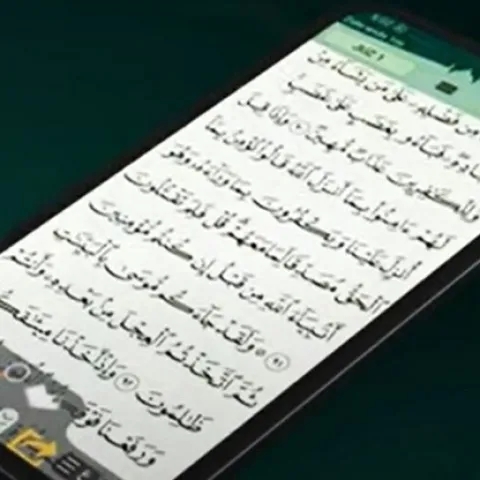 JUZ 1
مِن فَضْلِهِۦ عَلَىٰ مَن يَشَآءُ مِنْ
فَبَآءُو بِغَضَبٍ عَلَىٰ غَضَبٍ
وَلِلْكَٰفِرِينَ عَذَابٌ مُّهِينٌ ٩٠ وَإِذَا قِيلَ
لَهُمْ ءَامِنُوا۟ بِمَآ أَنزَلَ ٱللَّهُ قَالُوا۟ نُؤْمِنُ بِمَآ
أُنزِلَ عَلَيْنَا وَيَكْفُرُونَ بِمَا وَرَآءَهُۥ وَهُوَ
ٱلْحَقُّ مُصَدِّقًا لِّمَا مَعَهُمْ قُلْ فَلِمَ تَقْتُلُونَ
أَنۢبِيَآءَ ٱللَّهِ مِن قَبْلُ إِن كُنتُم مُّؤْمِنِينَ
٩١ ۞ وَلَقَدْ جَآءَكُم مُّوسَىٰ بِٱلْبَيِّنَٰتِ
ثُمَّ ٱتَّخَذْتُمُ ٱلْعِجْلَ مِنۢ بَعْدِهِۦ وَأَنتُمْ
ظَٰلِمُونَ ٩٢ وَإِذْ أَخَذْنَا مِيثَٰقَكُ
وَرَفَعْنَا فَوْ